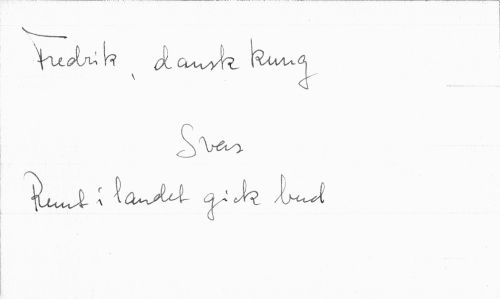 Fredrik, dansk kung
Svers
Runt i landet gick bud